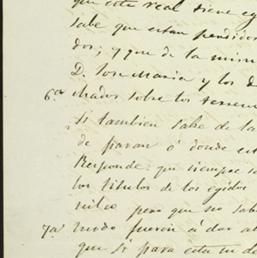 que este real tiene eg
sabe que estan pendien
dos; y que de la mism
D. Jose Maria y los d
6.a chados sobre los terren
Si tambien sabe de la
de paran ó donde est
Responde: que siempre s
los titulos de los egidos
pero que no sab
7.a modo fueron á dar al
que si para esta su d